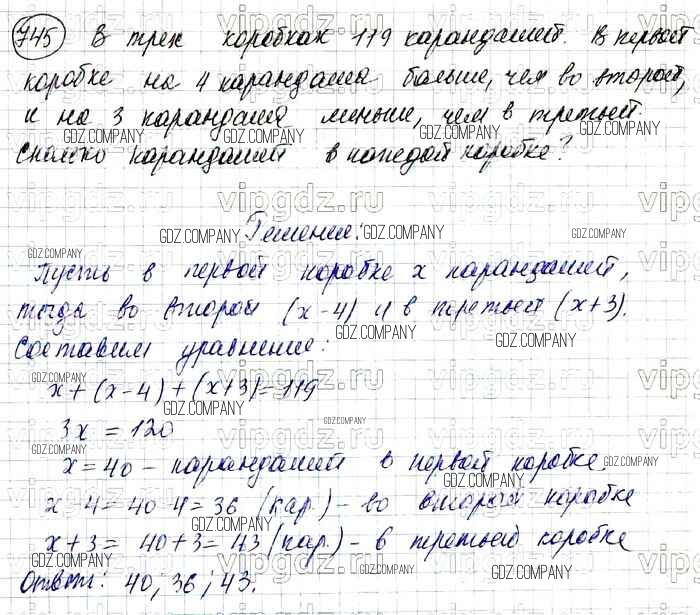 745 В трех коробках 119 карандашей. В первой
коробке на 4 карандаша больше, чем во второй,
и на 3 карандаша меньше, чем в третьей.
Сколько карандашей в каждой коробке?
Решение:
Пусть в первой коробке х карандашей,
тогда во второй (х-4) и в третьей (х+3).
Составим уравнение:
х+(х-4)+(х+3)=119
3х = 120
х=40 - карандашей в первой коробке.
х-4=40-4=36 (кар.) - во второй коробке
х+3= 40+3=43 (кар.) - в третьей коробке
Ответ: 40; 36; 43.